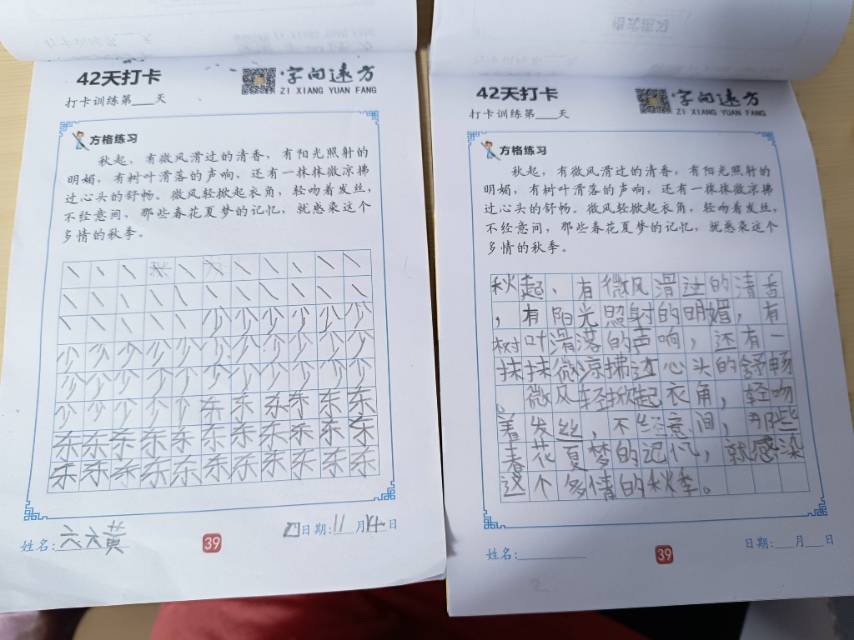 42天打卡
字向远方
ZI XIANG YUAN FANG
打卡训练第___天
方格练习
秋起，有微风滑过的清香，有阳光照射的
明媚，有树叶滑落的声响，还有一抹抹微凉拂
过心头的舒畅。微风轻掀起衣角，轻吻着发丝，
不经意间，那些春花夏梦的记忆，就感染这个
多情的秋季。
少少少少少少
少少少少少少少少少少少
少少少少少少少少少少少
少少少少少东东东东东东
东东东东东东东东东东东
东东东东东东东东东东东
姓名:六六黄
39
日期:11月14日
42天打卡
字向远方
ZI XIANG YUAN FANG
打卡训练第___天
方格练习
秋起，有微风滑过的清香，有阳光照射的
明媚，有树叶滑落的声响，还有一抹抹微凉拂
过心头的舒畅。微风轻掀起衣角，轻吻着发丝，
不经意间，那些春花夏梦的记忆，就感染这个
多情的秋季。
秋起、有微风滑过的清香
，有阳光照射的明媚，有
树叶滑落的声响，还有一
抹抹微凉拂过心头的舒畅
。微风轻掀起衣角，轻吻
着发丝，不经意间，那些
春花夏梦的记忆，就感染
这个多情的秋季。
姓名:
39
日期:___月___日